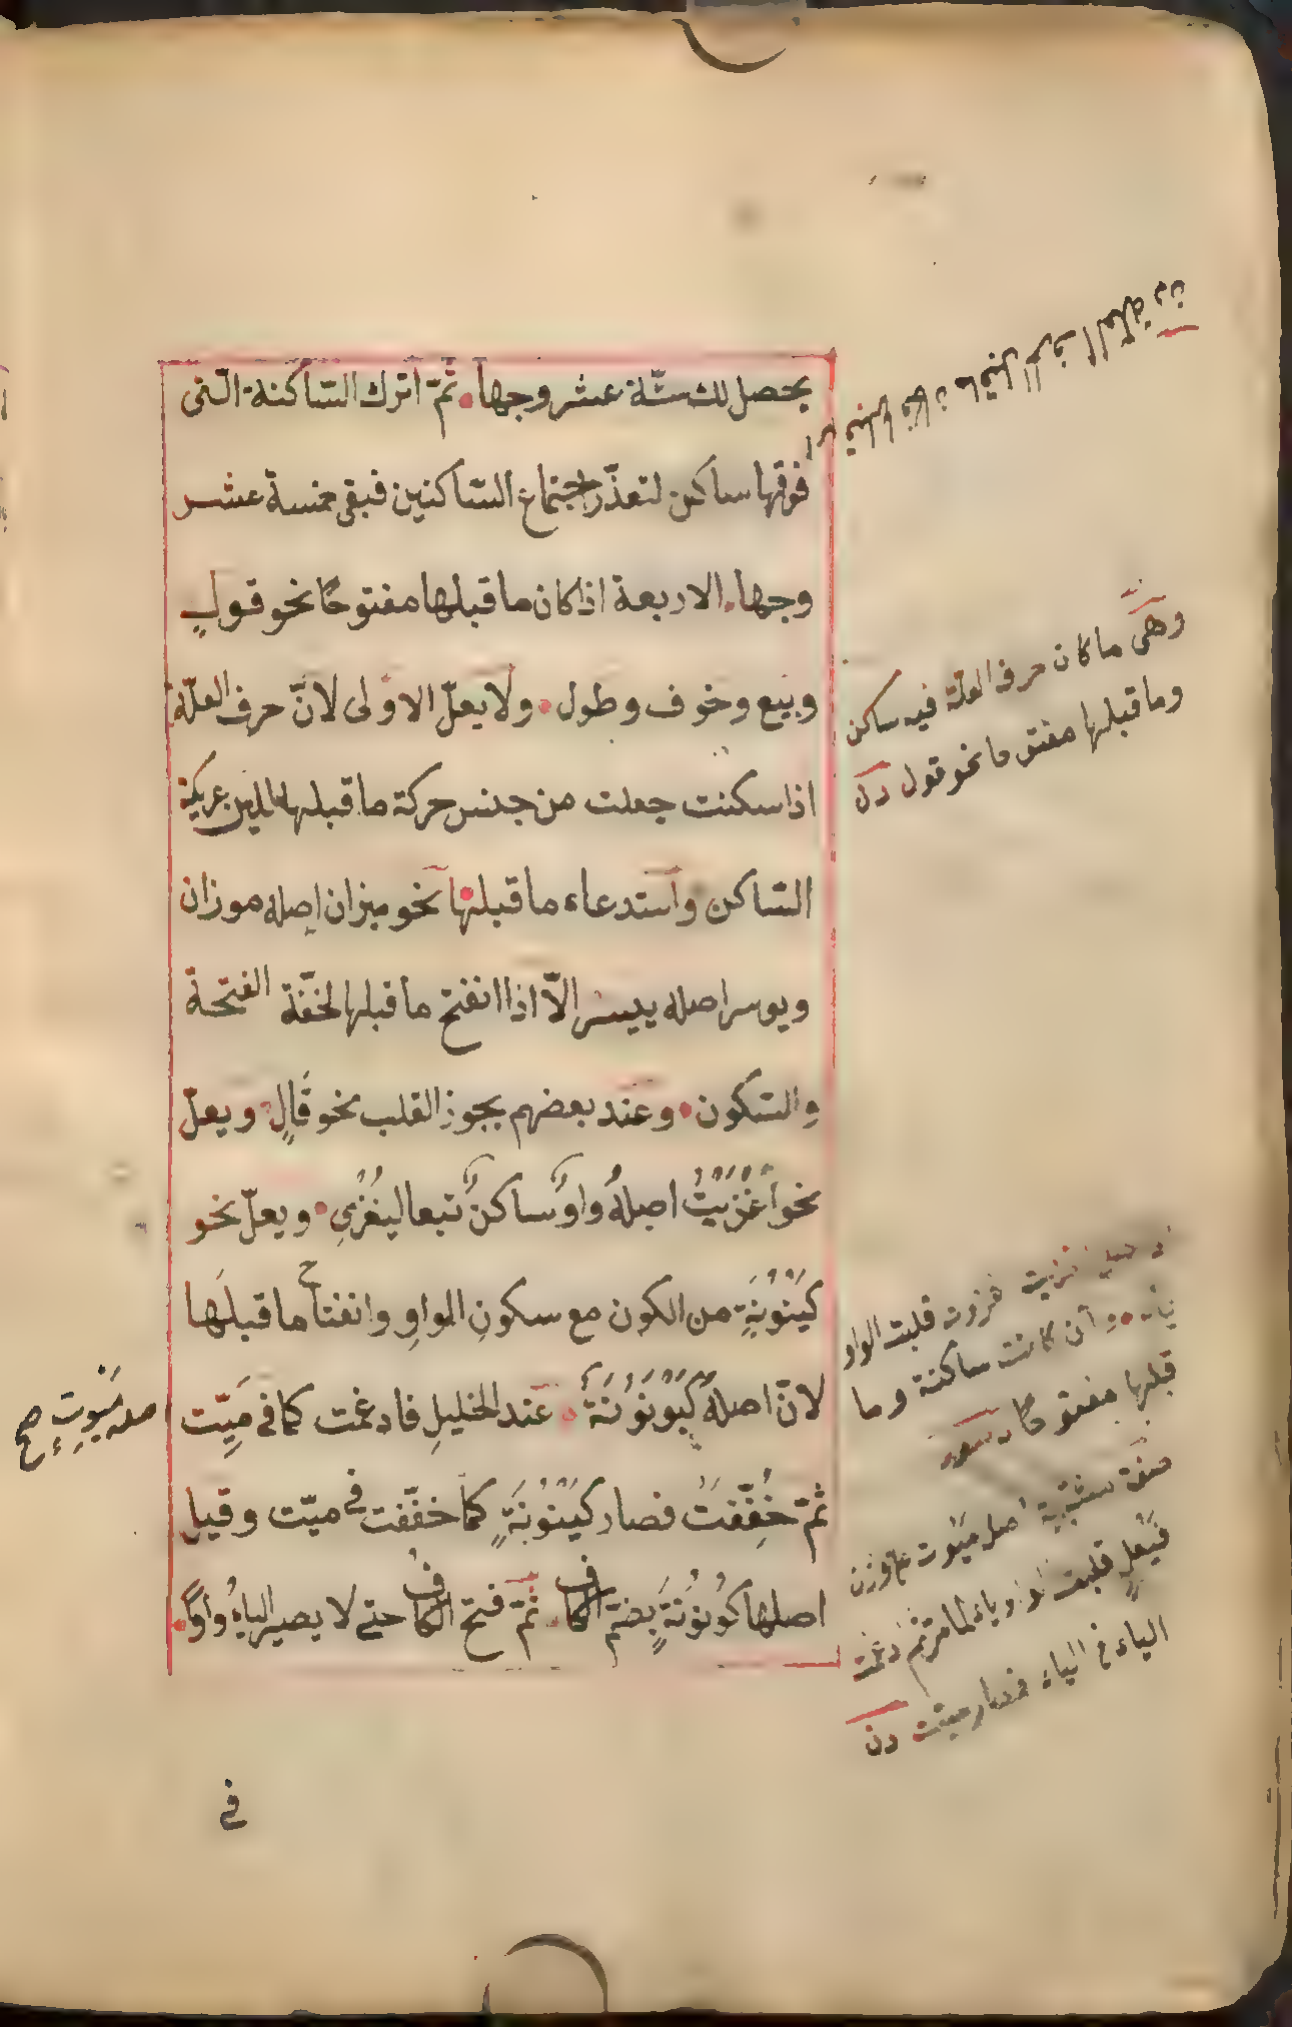 يحصل لك ستّة عشر وجهاً ثمّ اترك السّاكنة الّتى
فوقها ساكن لتعذّر اجتماع السّاكنين فبقى خمسة عشر
وجها الاربعة اذا كان ما قبلها مفتوحًا نحو قولٍ
وبيع وخوف وطول ولا يعلّ الاوّلى لانّ حرف العلّة
اذا سكنت جعلت من جنس حركة ما قبلها للين عريكة
السّاكن واستدعاء ما قبلها نحو ميزان اصله موزان
ويوسر اصله ييسر الّا اذا انفتح ما قبلها لخفّة الفتحة
والسّكون وعند بعضهم يجوز القلب نحو قَالٍ ويعلّ
نحو اَغْزَيْتُ اصلهُ واوٌ ساكنٌ تبعا ليُغْزِى ويعلّ نحو
كَيْنُوْنَةٍ من الكون مع سكونِ الواوِ وانفتاح ما قبلَها
لانّ اصلهُ كَيْوَنُوْنَةٌ عند الخليلِ فادغمت كما فى مَيِّت
ثمّ خُفِّفَتْ فصار كَيْنُوْنَةٍ كما خفّفت فى ميّت وقيل
اصلها كُوْنُوْنَةٍ بضمّ الكاف ثمّ فتح الكاف حتى لا يصير الياءُ واوًا
فى
ما قبل حرف العلّة
وهى ما كان حرف العلّة فيه ساكن
وما قبلها مفتوحا نحو قول
غزوت قلبت الواو
وان كانت ساكنة وما
قبلها مفتوحًا
اصل مَيْوِت على وزن
فَيْعِلٍ قلبت الواو ياء لما مرّ ثم ادغمت
الياء فى الياء فصار ميّت
اصله مَيْوِتٍ صح